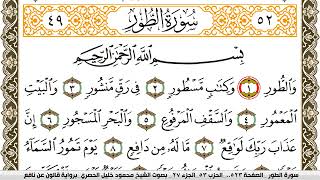 ٥٢ سُورَةُ الطُّورِ ٤٩
بِسْمِ اللَّهِ الرَّحْمَٰنِ الرَّحِيمِ
وَالطُّورِ ١ وَكِتَابٍ مَّسْطُورٍ ٢ فِي رَقٍّ مَّنشُورٍ ٣ وَالْبَيْتِ
الْمَعْمُورِ ٤ وَالسَّقْفِ الْمَرْفُوعِ ٥ وَالْبَحْرِ الْمَسْجُورِ ٦ إِنَّ
عَذَابَ رَبِّكَ لَوَاقِعٌ ٧ مَّا لَهُ مِن دَافِعٍ ٨ يَوْمَ تَمُورُ السَّمَاءُ
سورة الطور الصفحة ٥٢٣ .. الحزب ٥٣ .. الجزء ٢٧ .. بصوت الشيخ محمود خليل الحصري .. برواية قالون عن نافع